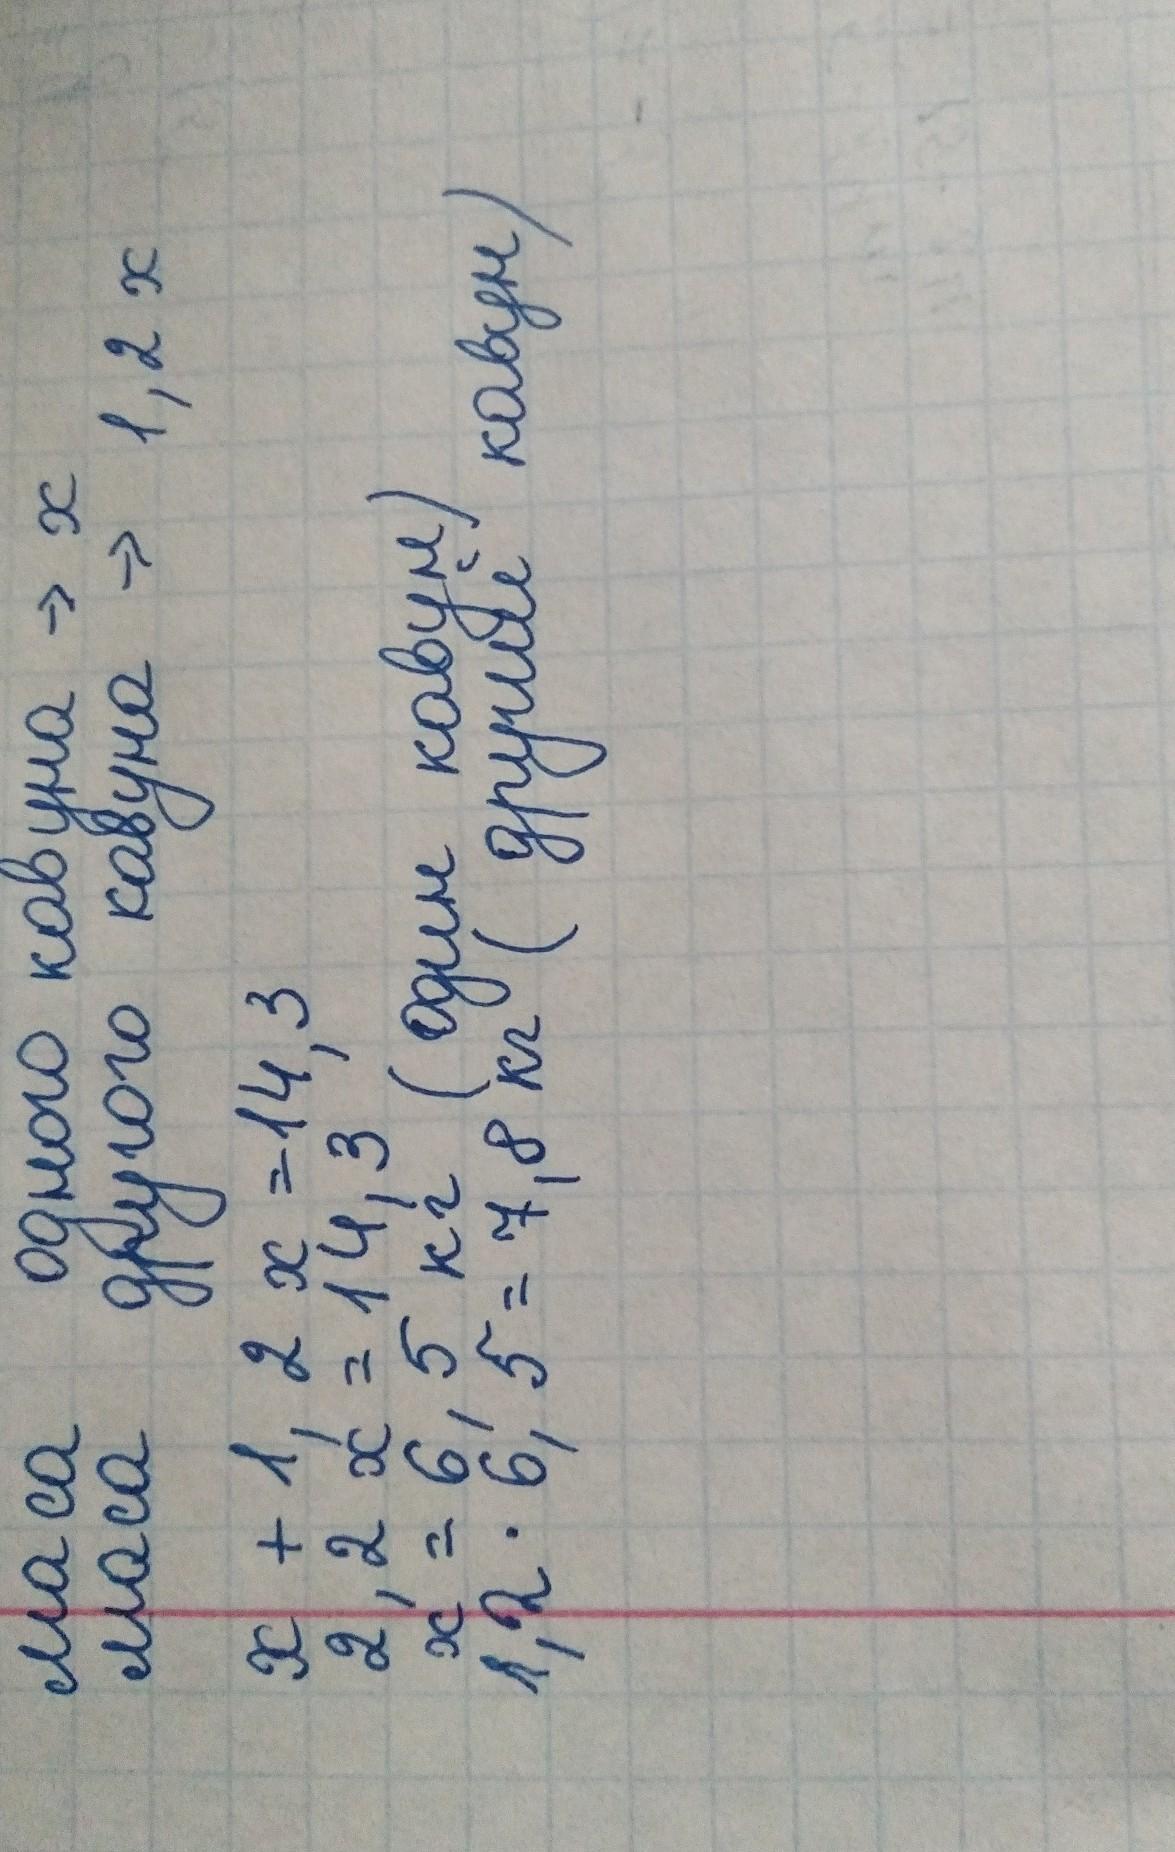 маса одного кавуна → x
маса другого кавуна → 1,2 x
x + 1,2 x = 14,3
2,2 x = 14,3
x = 6,5 кг (один кавун)
1,2 · 6,5 = 7,8 кг (другий кавун)